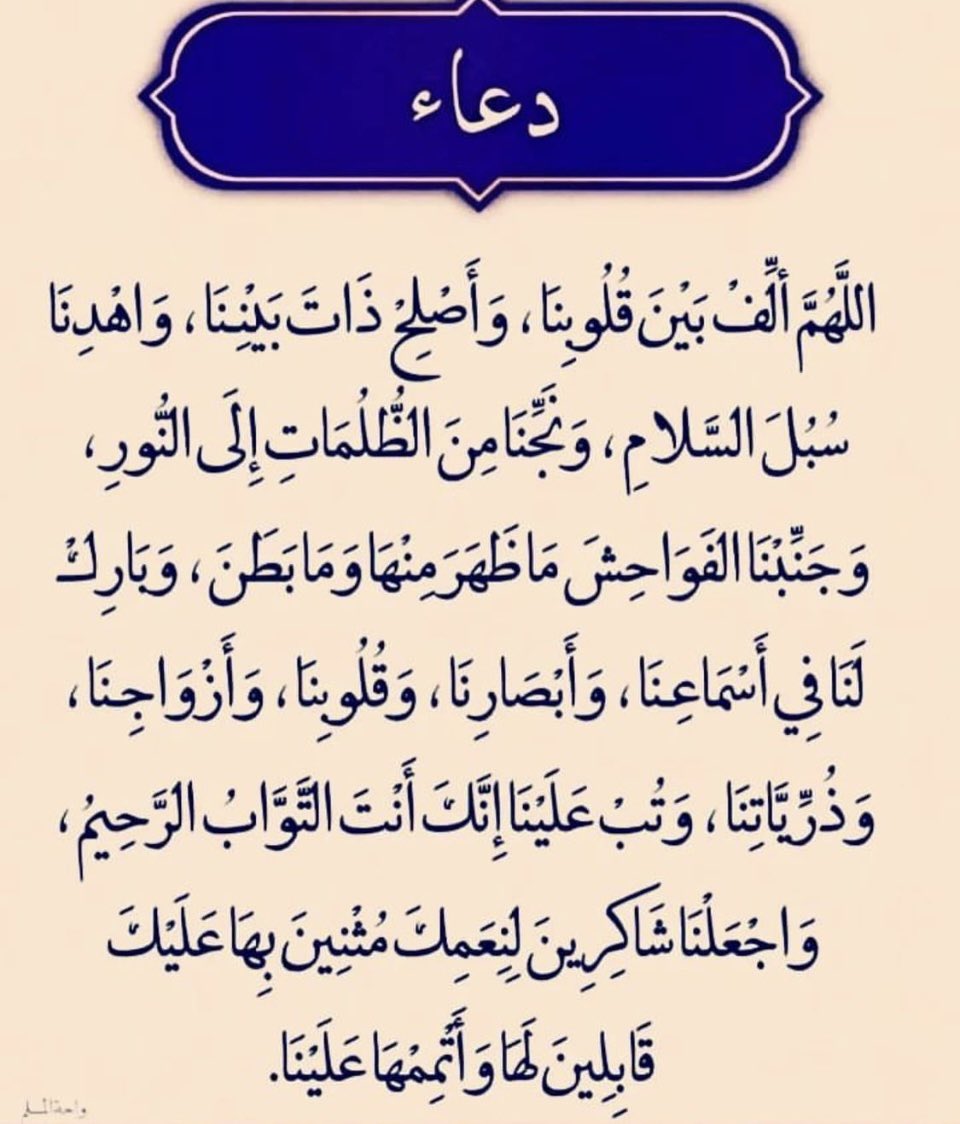 دعاء
اللَّهُمَّ أَلِّفْ بَيْنَ قُلُوبِنَا، وَأَصْلِحْ ذَاتَ بَيْنِنَا، وَاهْدِنَا
سُبُلَ السَّلامِ، وَنَجِّنَا مِنَ الظُّلُمَاتِ إِلَى النُّورِ،
وَجَنِّبْنَا الفَوَاحِشَ مَا ظَهَرَ مِنْهَا وَمَا بَطَنَ، وَبَارِكْ
لَنَا فِي أَسْمَاعِنَا، وَأَبْصَارِنَا، وَقُلُوبِنَا، وَأَزْوَاجِنَا،
وَذُرِّيَّاتِنَا، وَتُبْ عَلَيْنَا إِنَّكَ أَنْتَ التَّوَّابُ الرَّحِيمُ،
وَاجْعَلْنَا شَاكِرِينَ لِنِعَمِكَ مُثْنِينَ بِهَا عَلَيْكَ
قَابِلِينَ لَهَا وَأَتْمِمْهَا عَلَيْنَا.
واحة المسلم